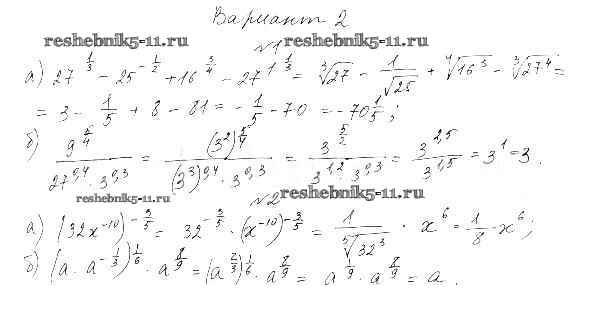 Вариант 2
reshebnik5-11.ru
№1
reshebnik5-11.ru
а) 27^(1/3) - 25^(-1/2) + 16^(3/4) - 27^(1 1/3) = ∛27 - 1/√25 + ∜16³ - ∛27⁴ =
= 3 - 1/5 + 8 - 81 = -1/5 - 70 = -70 1/5 ;
б) 9^(5/4) / (27^(0,4) · 3^(0,3)) = (3²)^(5/4) / ((3³)^(0,4) · 3^(0,3)) = 3^(5/2) / (3^(1,2) · 3^(0,3)) = 3^(2,5) / 3^(1,5) = 3¹ = 3 .
reshebnik5-11.ru
№2
reshebnik5-11.ru
а) (32x^(-10))^(-3/5) = 32^(-3/5) · (x^(-10))^(-3/5) = 1/⁵√32³ · x⁶ = 1/8 · x⁶ ;
б) (a · a^(-1/3))^(1/6) · a^(8/9) = (a^(2/3))^(1/6) · a^(8/9) = a^(1/9) · a^(8/9) = a .